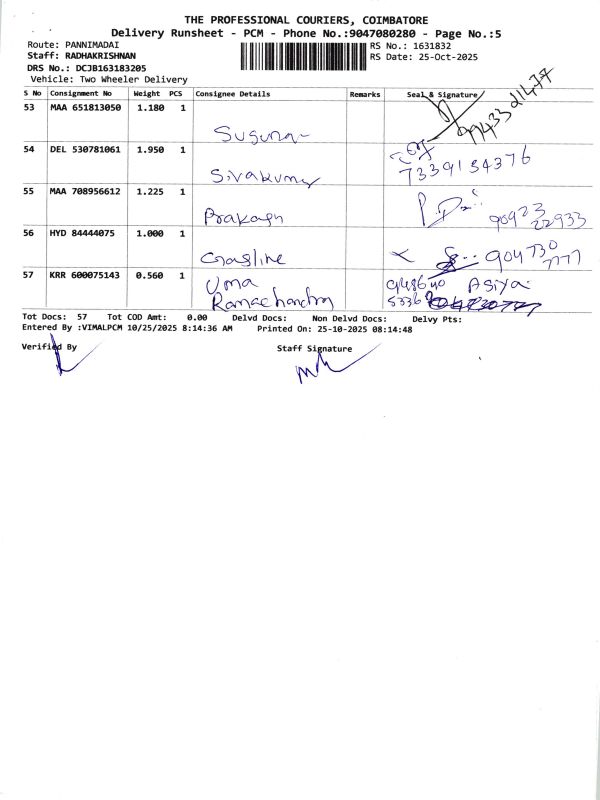 THE PROFESSIONAL COURIERS, COIMBATORE
Delivery Runsheet - PCM - Phone No.:9047080280 - Page No.:5
Route: PANNIMADAI
RS No.: 1631832
Staff: RADHAKRISHNAN
RS Date: 25-Oct-2025
DRS No.: DCJB163183205
Vehicle: Two Wheeler Delivery
S No Consignment No Weight PCS Consignee Details Remarks Seal & Signature
53 MAA 651813050 1.180 1
Suguna
54 DEL 530781061 1.950 1
Sivakumar 7339134376
55 MAA 708956612 1.225 1
Prakash 90923 22933
56 HYD 84444075 1.000 1
Gasline 904730 7777
57 KRR 600075143 0.560 1
Uma Asiya
Ramachandra
Tot Docs: 57 Tot COD Amt: 0.00 Delvd Docs: Non Delvd Docs: Delvy Pts:
Entered By :VIMALPCM 10/25/2025 8:14:36 AM Printed On: 25-10-2025 08:14:48
Verified By Staff Signature